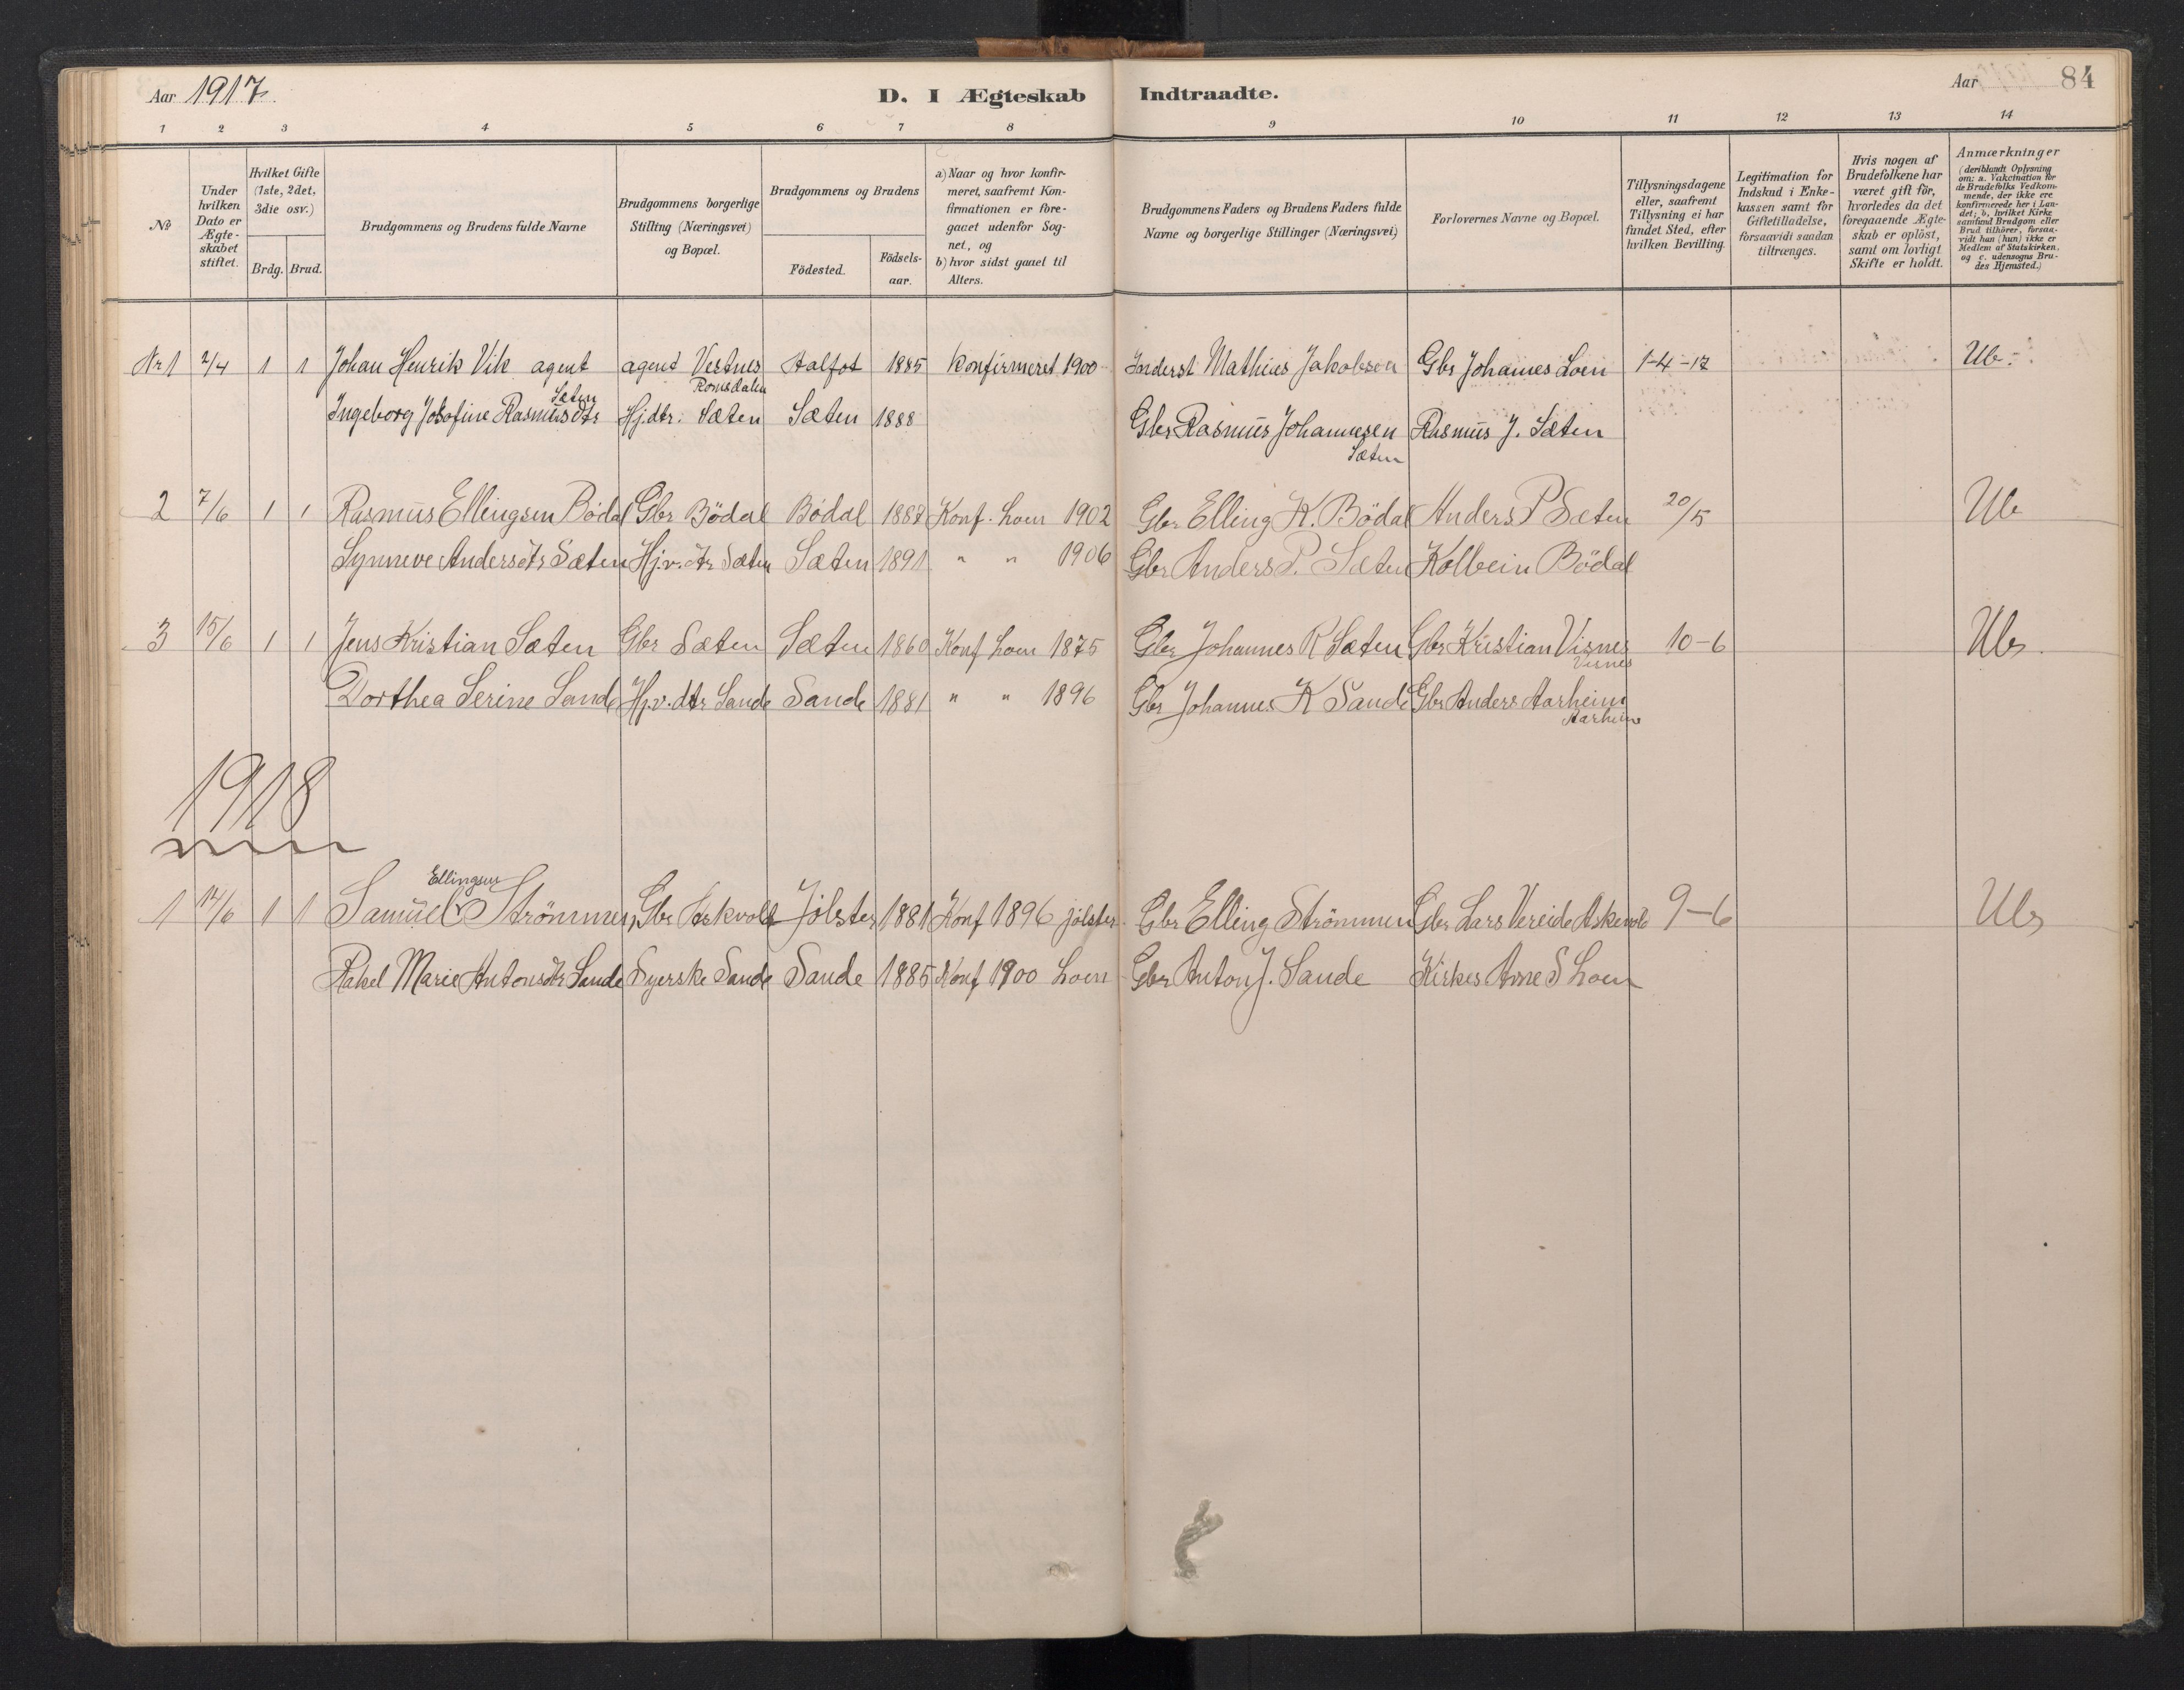 Aar 1917. D. I Ægteskab Indtraadte. Aar 84
1 2 3 4 5 6 7 8 9 10 11 12 13 14
No
Under hvilken Dato er Ægte-skabet stiftet.
Hvilket Gifte (1ste, 2det, 3die osv.)
Brdg. Brud.
Brudgommens og Brudens fulde Navne
Brudgommens borgerlige Stilling (Næringsvei) og Bopæl.
Brudgommens og Brudens
Födested.
Födsels-aar.
a) Naar og hvor konfir-meret, saafremt Kon-firmationen er fore-gaaet udenfor Sog-net, og
b) hvor sidst gaaet til Alters.
Brudgommens Faders og Brudens Faders fulde Navne og borgerlige Stillinger (Næringsvei)
Forlovernes Navne og Bopæl.
Tillysningsdagene eller, saafremt Tillysning ei har fundet Sted, efter hvilken Bevilling.
Legitimation for Indskud i Enke-kassen samt for Giftetilladelse, forsaavidt saadan tiltrænges.
Hvis nogen af Brudefolkene har været gift för, hvorledes da det foregaaende Ægte-skab er oplöst, samt om lovligt Skifte er holdt.
Anmærkninger (deriblandt Oplysning om: a. Vakcination for de Brudefolks Vedkom-mende, der ikke ere konfirmerede her i Lan-det; b. hvilket Kirke-samfund Brudgom eller Brud tilhörer, forsaa-vidt han (hun) ikke er Medlem af Statskirken, og c. udensogns Bru-des Hjemsted.)
Nr 1 2/4 1 1 Johan Henrik Vik agent agent Vestnes Romsdalen Aalfot 1885 Konfirmeret 1900 Inderst Mathias Jakobsen Gbr Johannes Loen 1-4-17 Ub.
Ingeborg Josofine Rasmusdtr Sæten Hj.dtr. Sæten Sæten 1888 Gbr Rasmus Johannesen Sæten Rasmus J. Sæten
2 7/6 1 1 Rasmus Ellingsen Bödal Gbr Bödal Bödal 1887 Konf. Loen 1902 Gbr Elling K. Bödal Anders P Sæten 20/5 Ub
Synneve Andersdtr Sæten Hj.v. dtr Sæten Sæten 1891 " " 1906 Gbr Anders P. Sæten Kolbein Bödal
3 15/6 1 1 Jens Kristian Sæten Gbr Sæten Sæten 1860 Konf Loen 1875 Gbr Johannes R Sæten Gbr Kristian Visnes Visnes 10-6 Ub.
Dorthea Serine Sande Hj.v. dtr Sande Sande 1881 " " 1896 Gbr Johannes K Sande Gbr Anders Aarheim Aarheim
1918
1 14/6 1 1 Samuel Ellingsen Strömmen, Gbr Askvold Jölster 1881 Konf 1896 jölster Gbr Elling Strömmen Gbr Lars Vereide Askevold 9-6 Ub
Rakel Marie Antonsdtr Sande Syerske Sande Sande 1885 Konf 1900 Loen Gbr Anton J. Sande Kirkes Arne S Loen